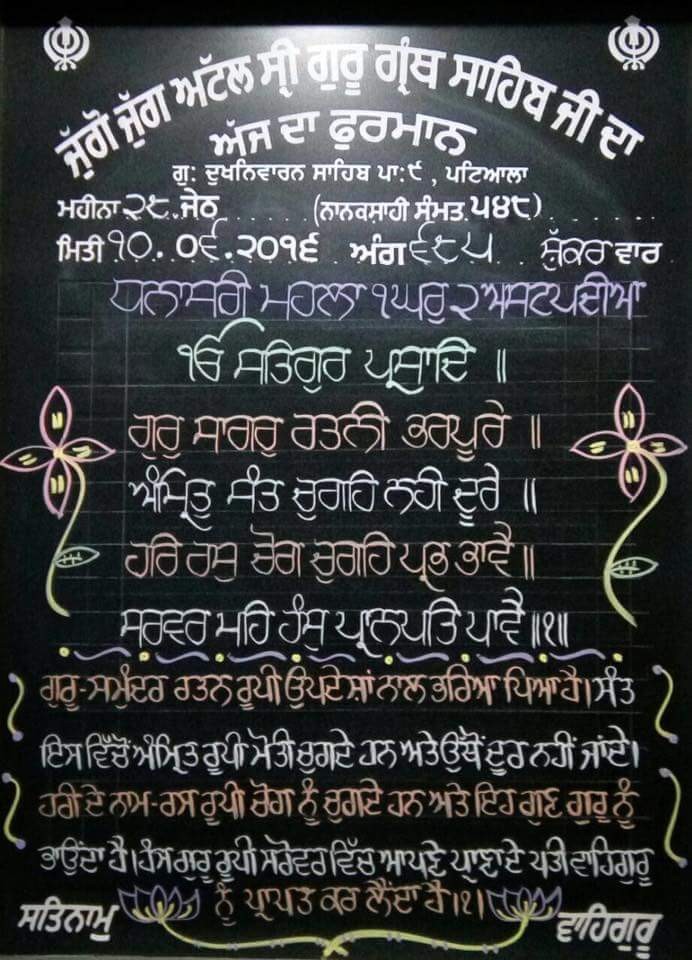 ਜੁੱਗੋ ਜੁੱਗ ਅਟੱਲ ਸ੍ਰੀ ਗੁਰੂ ਗ੍ਰੰਥ ਸਾਹਿਬ ਜੀ ਦਾ
ਅੱਜ ਦਾ ਫੁਰਮਾਨ
ਗੁ: ਦੁਖਨਿਵਾਰਨ ਸਾਹਿਬ ਪਾ:੯ , ਪਟਿਆਲਾ
ਮਹੀਨਾ ੨੮ ਜੇਠ (ਨਾਨਕਸਾਹੀ ਸੰਮਤ ੫੪੮)
ਮਿਤੀ ੧੦.੦੬.੨੦੧੬ ਅੰਗ ੬੮੫ ਸ਼ੁੱਕਰ ਵਾਰ
ਧਨਾਸਰੀ ਮਹਲਾ ੧ ਘਰੁ ੨ ਅਸਟਪਦੀਆ
ੴ ਸਤਿਗੁਰ ਪ੍ਰਸਾਦਿ ॥
ਗੁਰੁ ਸਾਗਰੁ ਰਤਨੀ ਭਰਪੂਰੇ ॥
ਅੰਮ੍ਰਿਤੁ ਸੰਤ ਚੁਗਹਿ ਨਹੀ ਦੂਰੇ ॥
ਹਰਿ ਰਸੁ ਚੋਗ ਚੁਗਹਿ ਪ੍ਰਭ ਭਾਵੈ ॥
ਸਰਵਰ ਮਹਿ ਹੰਸੁ ਪ੍ਰਾਨਪਤਿ ਪਾਵੈ ॥੧॥
ਗੁਰੂ-ਸਮੁੰਦਰ ਰਤਨ ਰੂਪੀ ਉਪਦੇਸ਼ਾਂ ਨਾਲ ਭਰਿਆ ਪਿਆ ਹੈ। ਸੰਤ
ਇਸ ਵਿੱਚੋਂ ਅੰਮ੍ਰਿਤ ਰੂਪੀ ਮੋਤੀ ਚੁਗਦੇ ਹਨ ਅਤੇ ਉੱਥੋਂ ਦੂਰ ਨਹੀਂ ਜਾਂਦੇ।
ਹਰੀ ਦੇ ਨਾਮ-ਰਸ ਰੂਪੀ ਚੋਗ ਨੂੰ ਚੁਗਦੇ ਹਨ ਅਤੇ ਇਹ ਗੁਣ ਗੁਰੂ ਨੂੰ
ਭਾਉਂਦਾ ਹੈ। ਹੰਸ ਗੁਰੂ ਰੂਪੀ ਸਰੋਵਰ ਵਿੱਚ ਆਪਣੇ ਪ੍ਰਾਣਾਂ ਦੇ ਪਤੀ ਵਾਹਿਗੁਰੂ
ਨੂੰ ਪ੍ਰਾਪਤ ਕਰ ਲੈਂਦਾ ਹੈ।੧।
ਸਤਿਨਾਮੁ ਵਾਹਿਗੁਰੂ